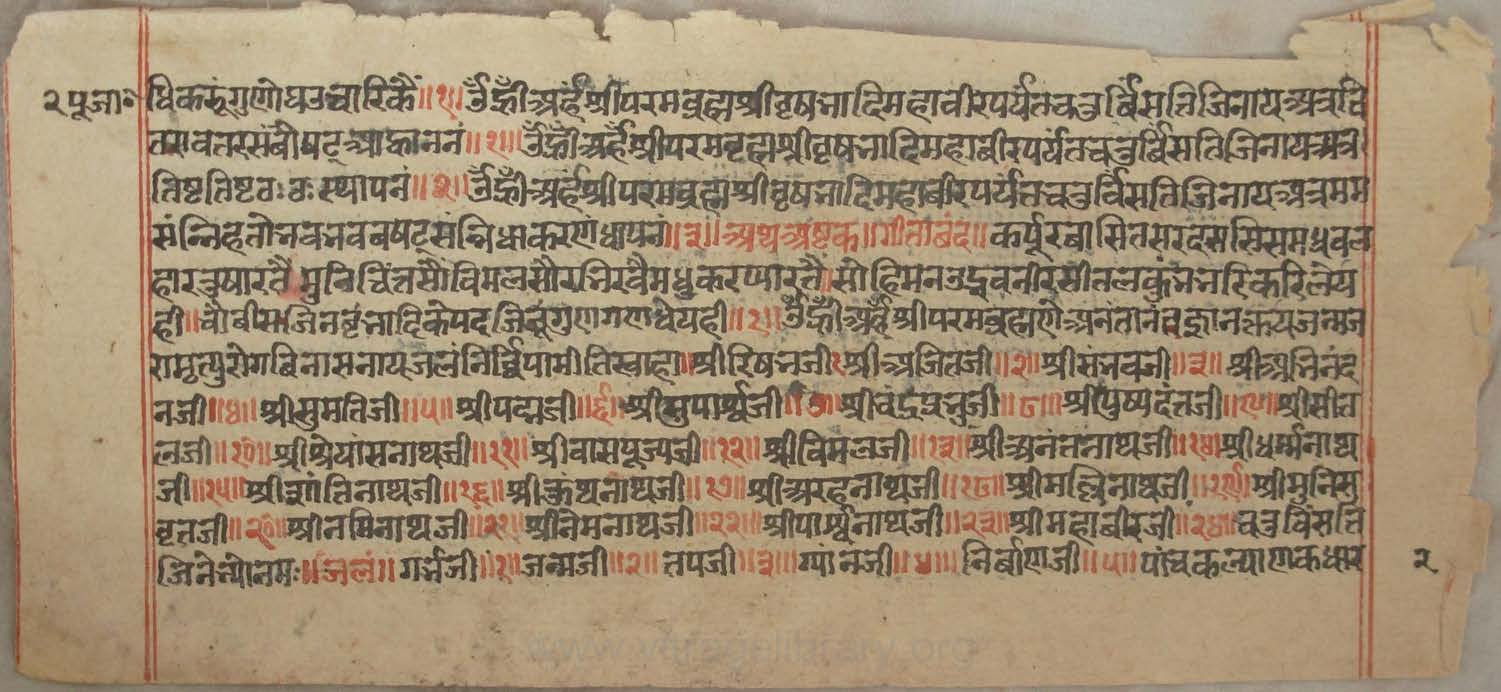 २ पूजा॰ धिक रूंगुणोघ उच्चारिकैं॥१॥ ॐ ह्रीँ अर्हं श्री परमब्रह्म श्रीवृषभादिमहावीरपर्यंतचतुर्विंसतिजिनाय अत्रवति
तरावतरसंवौषट् आह्वाननं॥१॥ ॐ ह्रीँ अर्हं श्रीपरमब्रह्म श्रीवृषभादिमहावीरपर्यंतचतुर्विंसतिजिनाय अत्र
तिष्टतिष्टठःठः स्थापनं॥२॥ ॐ ह्रीँ अर्हं श्रीपरमब्रह्म श्रीवृषभादिमहावीरपर्यंतचतुर्विंसतिजिनाय अत्रमम
संन्निहतोभवभववषट् संन्निधाकरणं ध्यापनं॥३॥ अथ अष्टक॥ गीताछंद॥ कर्पूरबासितसरदससिसमधवल
हारतुषारतै मुनिचिंतसौंविमलसौरभिरवैमधुकरप्यारतै। सोहिमनउद्भवनीरसीतलकुंभभरिकरिलेय
ही॥ चौबीसजिनवृंभादिकेपदजिनुंगुणगणध्येयही॥१॥ ॐ ह्रीँ अर्हं श्रीपरमब्रह्मणे अनंतानंतज्ञानक्तयजन्मज
रामृत्युरोगविनासनायजलंनिर्व्विपामीतिस्वाहा॥ श्रीरिषभजी१ श्रीअजितजी॥२॥ श्रीसंभवजी॥३॥ श्रीअभिनंद
नजी॥४॥ श्रीसुमतिजी॥५॥ श्रीपद्मजी॥६॥ श्रीसुपार्श्वजी॥७॥ श्रीचंद्रप्रभुजी॥८॥ श्रीपुष्पदंतजी॥९॥ श्रीसीत
लजी॥१०॥ श्रीश्रेयांसनाथजी॥११॥ श्रीवासपूज्यजी॥१२॥ श्रीविमलजी॥१३॥ श्रीअनंतनाथजी॥१४॥ श्रीधर्म्मनाथ
जी॥१५॥ श्रीशांतिनाथजी॥१६॥ श्रीकुंथनाथजी॥१७॥ श्रीअरहनाथजी॥१८॥ श्रीमल्लिनाथजी॥१९॥ श्रीमुनिसु
वृतजी॥२०॥ श्रीनमिनाथजी॥२१॥ श्रीनेमनाथजी॥२२॥ श्रीपार्श्वनाथजी॥२३॥ श्रीमहावीरजी॥२४॥ चतुर्विंसति
जिनेभ्योनमः॥ जलं॥ गर्भजी॥१॥ जन्मजी॥२॥ तपजी॥३॥ ग्यांनजी॥४॥ निर्बाणजी॥५॥ पांचकल्याणकधार
२